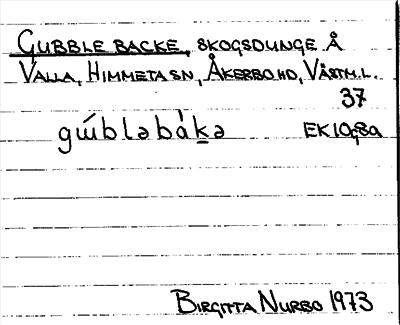 GUBBLE BACKE, SKOGSDUNGE Å
VALLA, HIMMETA SN, ÅKERBO HD, VÄSTM.L.
37
gɯ́bləbàk̠ə EK 10g8a
BIRGITTA NURBO 1973